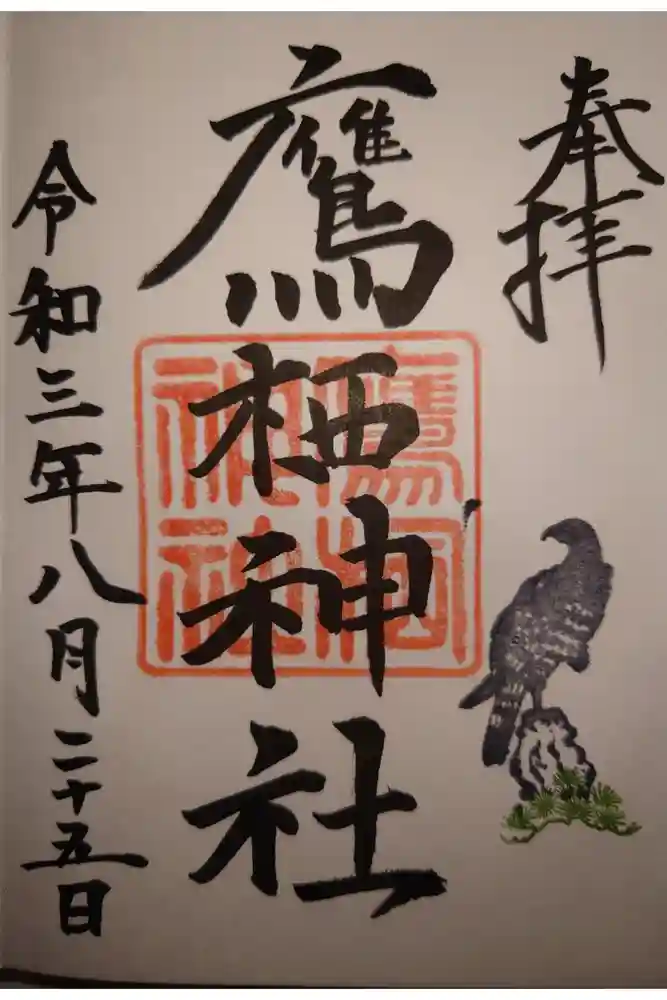 奉拝
鷹栖神社
令和三年八月二十五日
鷹栖
神社